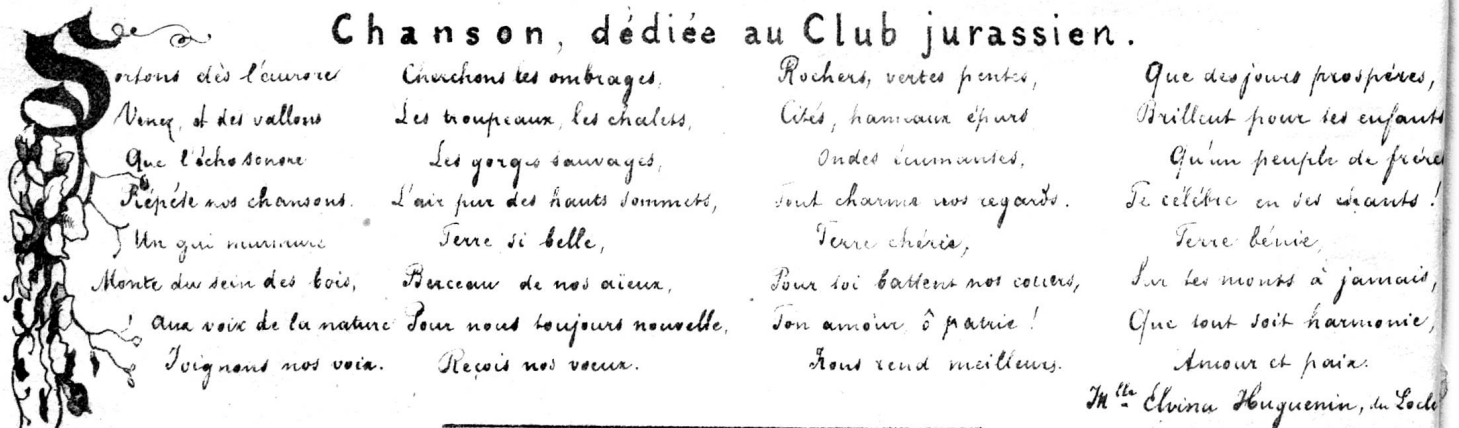 Chanson, dédiée au Club jurassien.
Sortons dès l'aurore
Venez, et des vallons
Que l'écho sonore
Répéte nos chansons.
Un gai murmure
Monte du sein des bois,
Aux voix de la nature
Joignons nos voix.
Cherchons les ombrages,
Les troupeaux, les chalets,
Les gorges sauvages,
L'air pur des hauts sommets,
Terre si belle,
Berceau de nos aïeux,
Pour nous toujours nouvelle,
Reçois nos voeux.
Rochers, vertes pentes,
Cités, hameaux épars
Ondes écumantes,
Tout charme nos regards.
Terre chérie,
Pour toi battent nos coeurs,
Ton amour, ô patrie !
Nous rend meilleurs.
Que des jours prospéres,
Brillent pour tes enfants
Qu'un peuple de frére
Te célébre en ses chants !
Terre bénie,
Sur tes monts à jamais,
Que tout soit harmonie,
Amour et paix.
Mlle Elvina Huguenin, du Locle